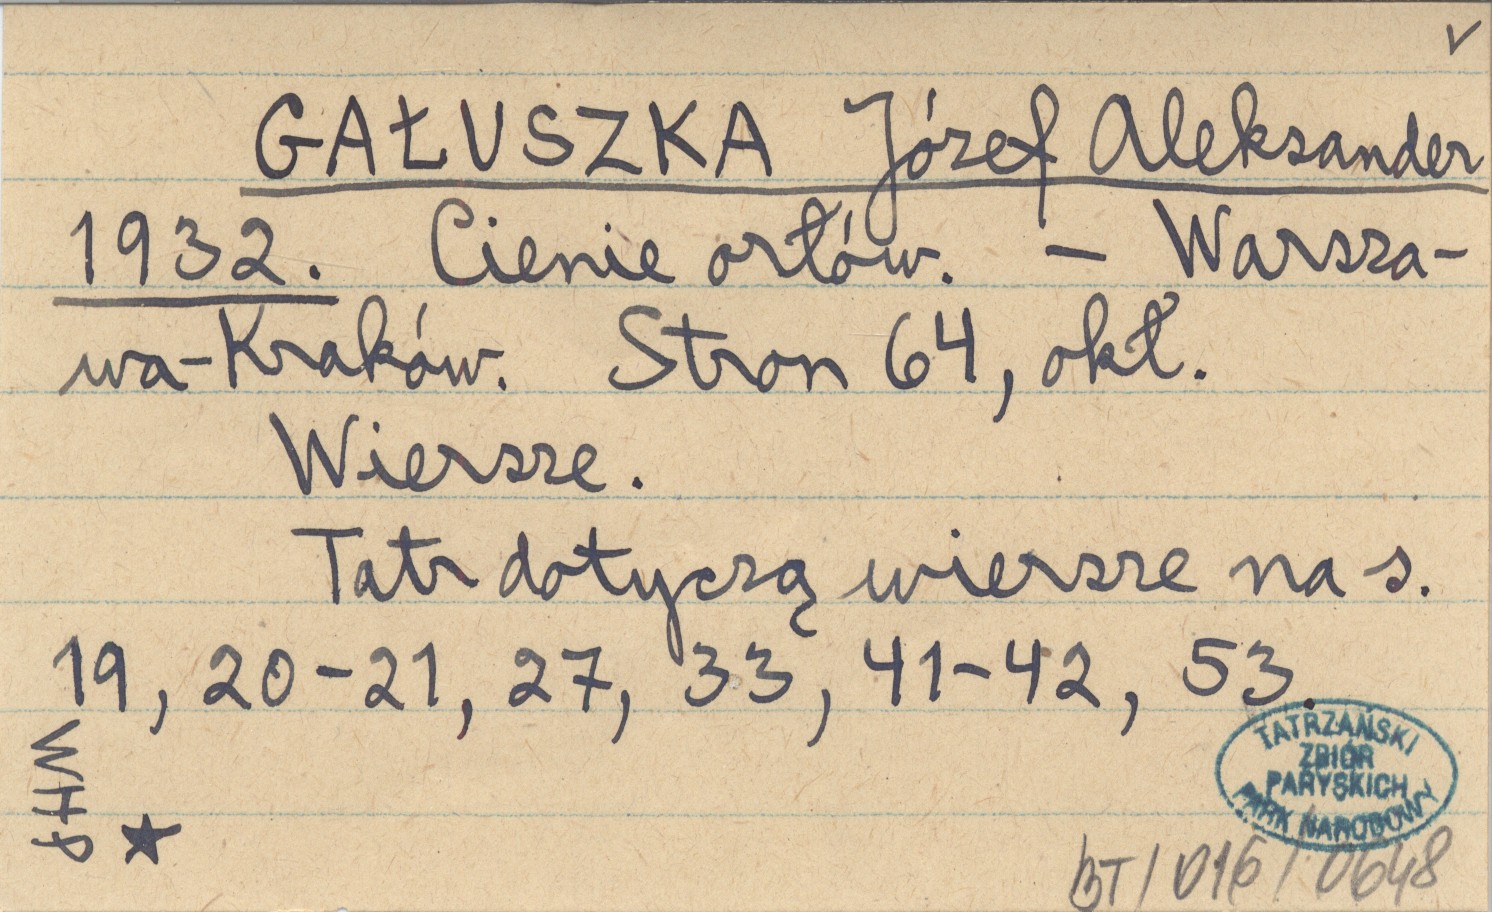 v
GAŁUSZKA Józef Aleksander
1932. Cienie orłów. – Warsza-
wa-Kraków. Stron 64, okł.
Wiersze.
Tatr dotyczą wiersze na s.
19, 20-21, 27, 33, 41-42, 53.
WHP
★
TATRZAŃSKI
ZBIÓR
PARYSKICH
PARK NARODOWY
BT/016/0648